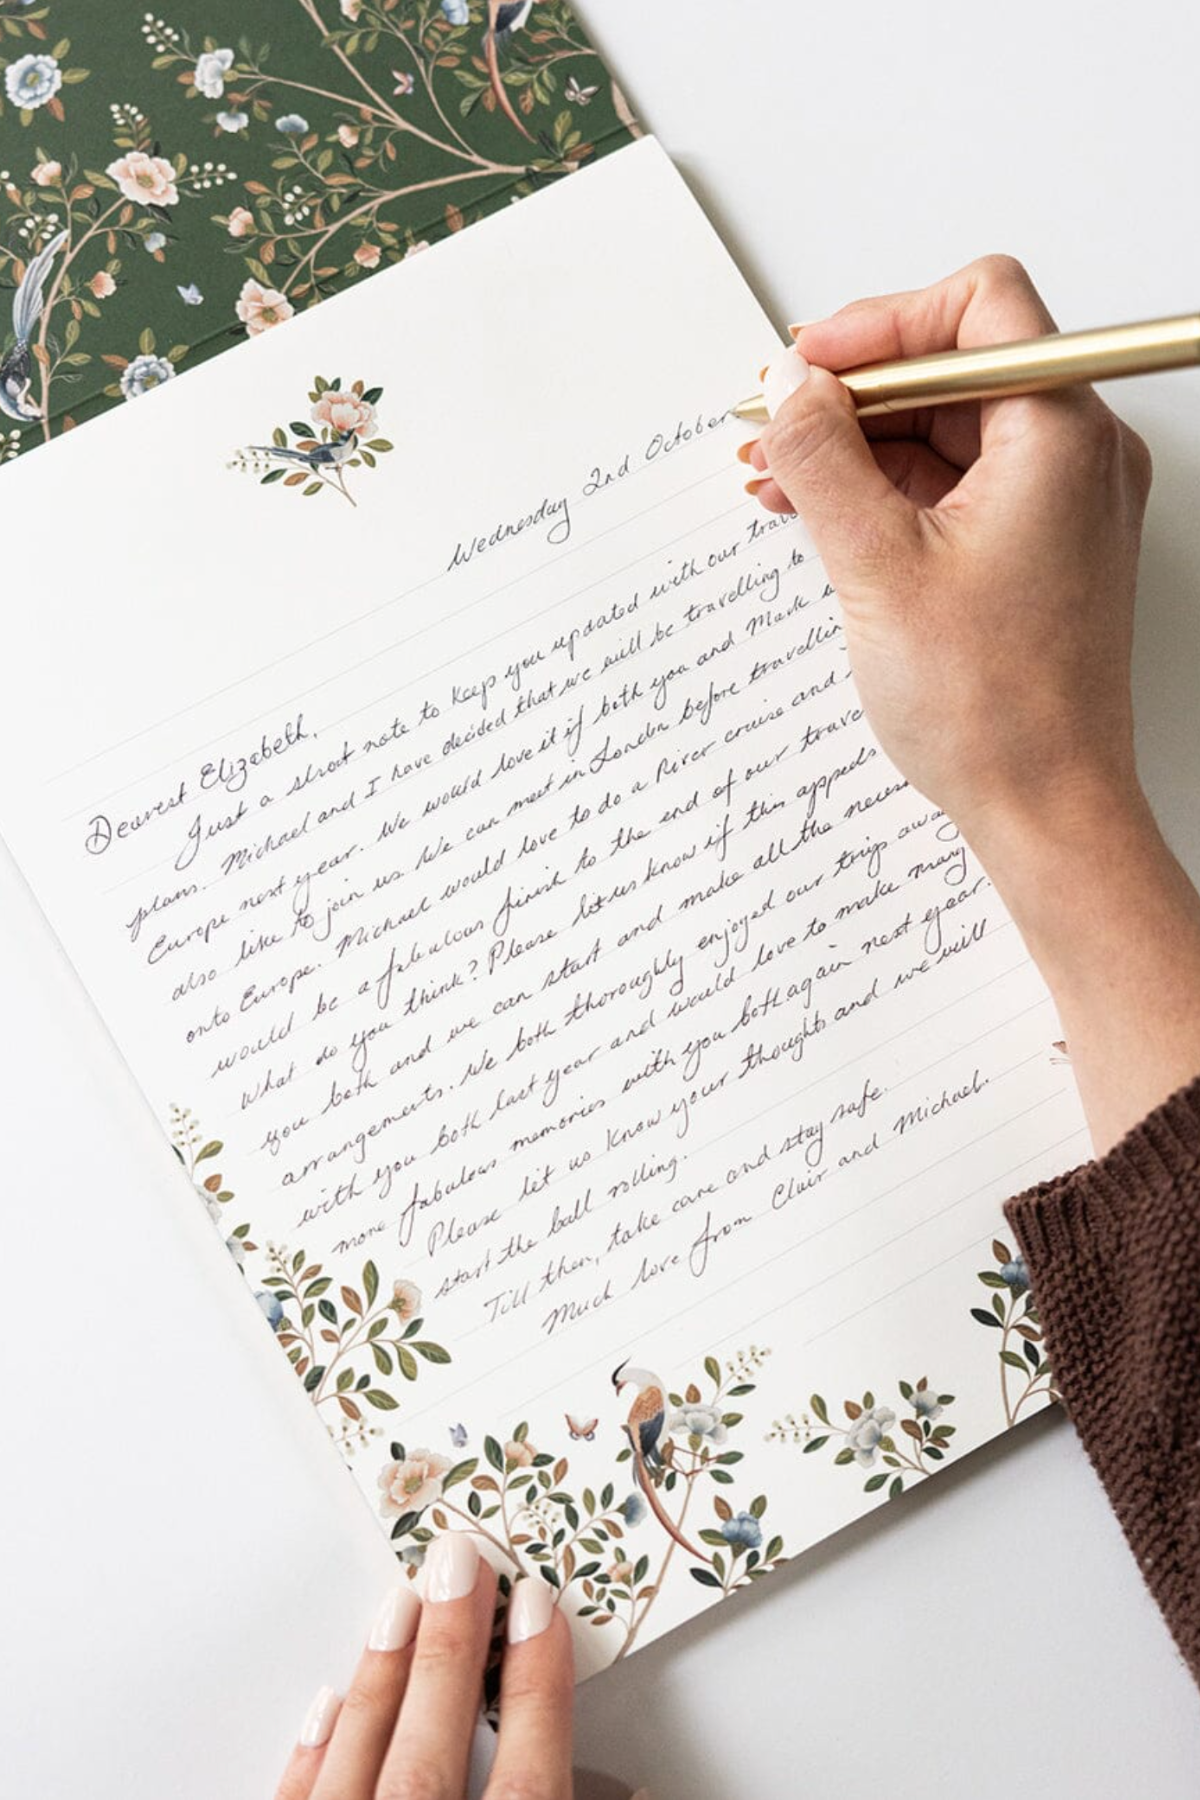 Wednesday 2nd October
Dearest Elizabeth,
Just a short note to keep you updated with our
plans. Michael and I have decided that we will be travelling to
Europe next year. We would love it if both you and Mark
also like to join us. We can meet in London before
onto Europe. Michael would love to do a River cruise and
would be a fabulous finish to the end of our
What do you think? Please let us know if this appeals
you both and we can start and make all the
arrangements. We both thoroughly enjoyed our trips
with you both last year and would love to make many
more fabulous memories with you both again next year.
Please let us know your thoughts and we will
start the ball rolling.
Till then, take care and stay safe.
Much love from Clair and Michael.